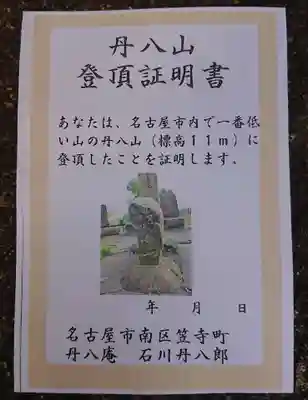 丹八山
登頂証明書
あなたは、名古屋市内で一番低
い山の丹八山（標高１１ｍ）に
登頂したことを証明します。
年　月　日
名古屋市南区笠寺町
丹八庵　石川丹八郎